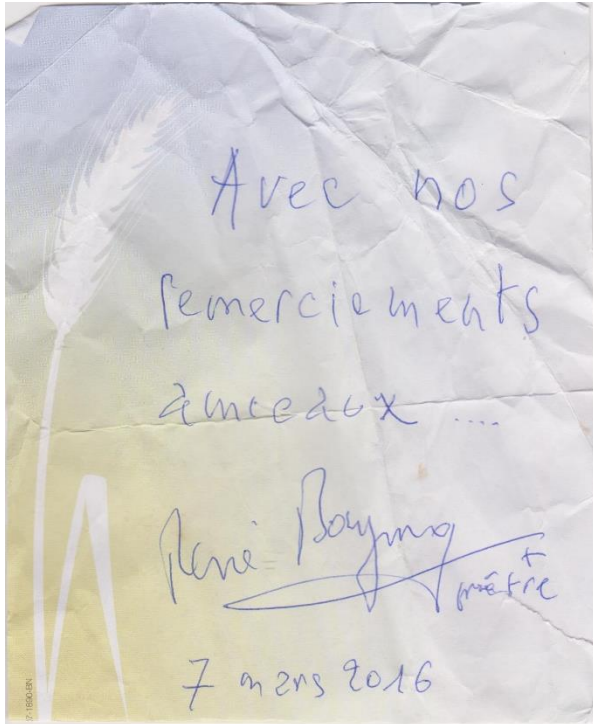 Avec nos
remerciements
amicaux ....
René
+
prêtre
7 mars 2016